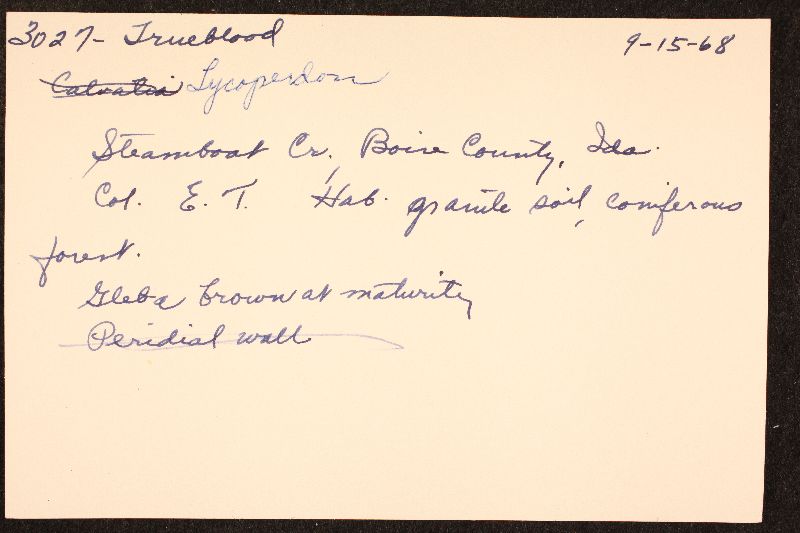 3027- Trueblood 9-15-68
Calvatia Lycoperdon
Steamboat Cr., Boise County, Ida.
Col. E. T. Hab. granite soil, coniferous
forest.
Gleba brown at maturity
Peridial wall